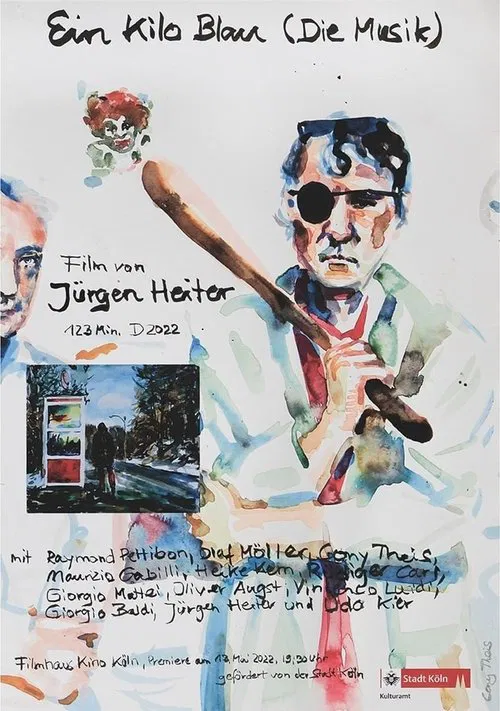 Ein Kilo Blau (Die Musik)
Film von
Jürgen Heiter
123 Min. D 2022
mit Raymond Pettibon, Olaf Möller, Gony Theis,
Maurizio Gabilli, Heike Kern, Rüdiger Carl,
Giorgio Mattei, Oliver Augst, Vincenzo Luidi,
Giorgio Baldi, Jürgen Heiter und Udo Kier
Filmhaus Kino Köln, Premiere am 13. Mai 2022, 19:30 Uhr
gefördert von der Stadt Köln
Stadt Köln
Kulturamt
Gony Theis